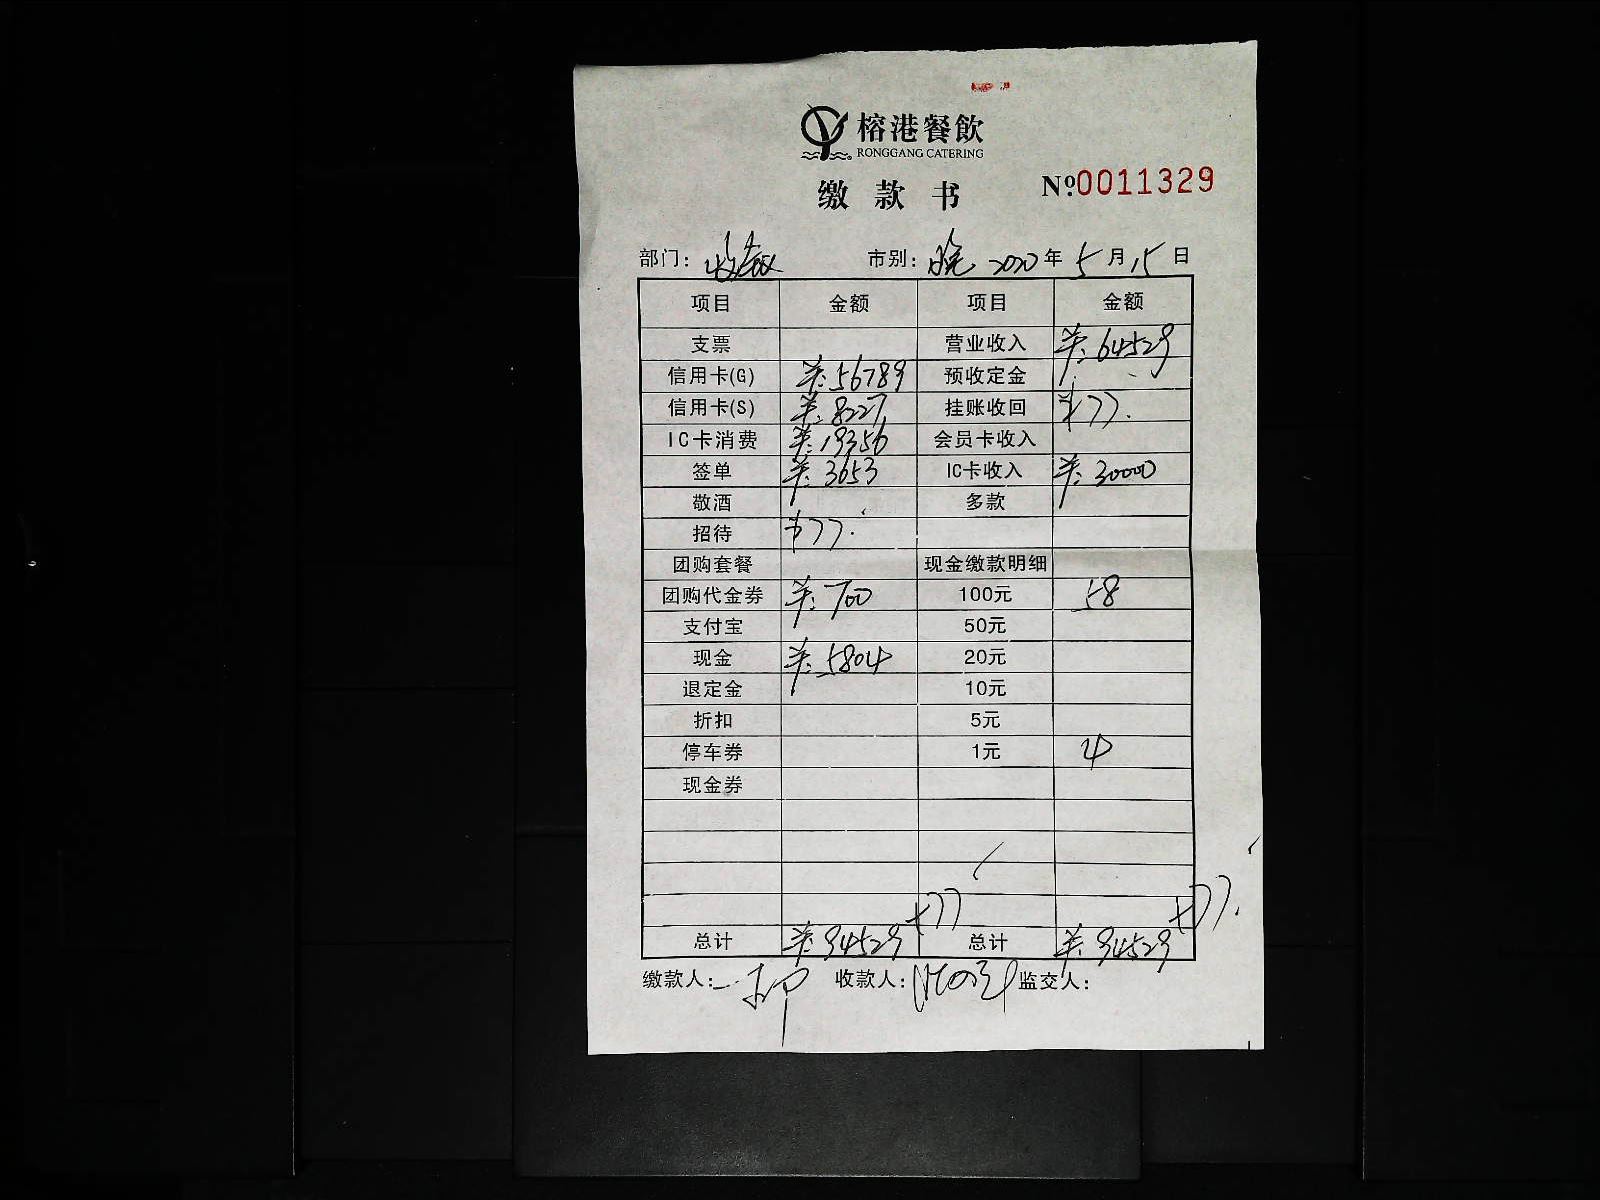 榕港餐飲
RONGGANG CATERING
缴款书 №0011329
部门: 收款 市别: 晚 2020年5月15日
项目 金额 项目 金额
支票 营业收入 ¥:64529
信用卡(G) ¥:56789 预收定金
信用卡(S) ¥:8227 挂账收回 ¥77.
IC卡消费 ¥:19356 会员卡收入
签单 ¥:3653 IC卡收入 ¥:30000
敬酒 多款
招待 ¥77.
团购套餐 现金缴款明细
团购代金券 ¥:700 100元 58
支付宝 50元
现金 ¥:5804 20元
退定金 10元
折扣 5元
停车券 1元 4
现金券
+77 +77.
总计 ¥:94529 总计 ¥:94529
缴款人: 收款人: 监交人: